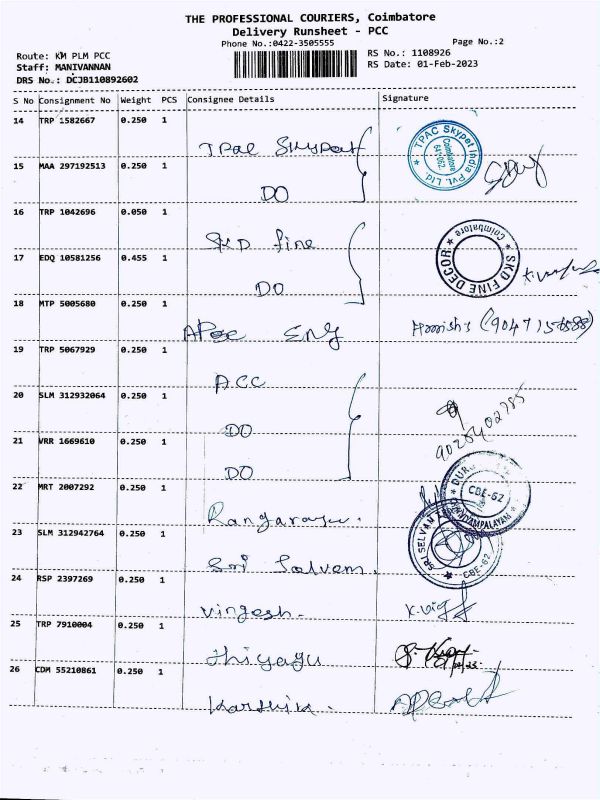 THE PROFESSIONAL COURIERS, Coimbatore
Delivery Runsheet - PCC
Phone No.:0422-3505555
Page No.:2
Route: KM PLM PCC
RS No.: 1108926
Staff: MANIVANNAN
RS Date: 01-Feb-2023
DRS No.: DCJB110892602
S No Consignment No Weight PCS Consignee Details Signature
14 TRP 1582667 0.250 1
TPAC Skypet India Pvt. Ltd. Coimbatore 641 062.
15 MAA 297192513 0.250 1
DO
16 TRP 1042696 0.050 1
SKD fine
SKD FINE DECOR Coimbatore
17 EDQ 10581256 0.455 1
DO
18 MTP 5005680 0.250 1
ENG
19 TRP 5067929 0.250 1
ACC
20 SLM 312932064 0.250 1
DO
21 VRR 1669610 0.250 1
DO
22 MRT 2007292 0.250 1
CBE-62
Rangaraju.
23 SLM 312942764 0.250 1
SRI SELVAM CBE-62
Sri Selvam.
24 RSP 2397269 0.250 1
Vingesh. K.Vig
25 TRP 7910004 0.250 1
Thiyagu
26 CDM 55210861 0.250 1
Karthik.